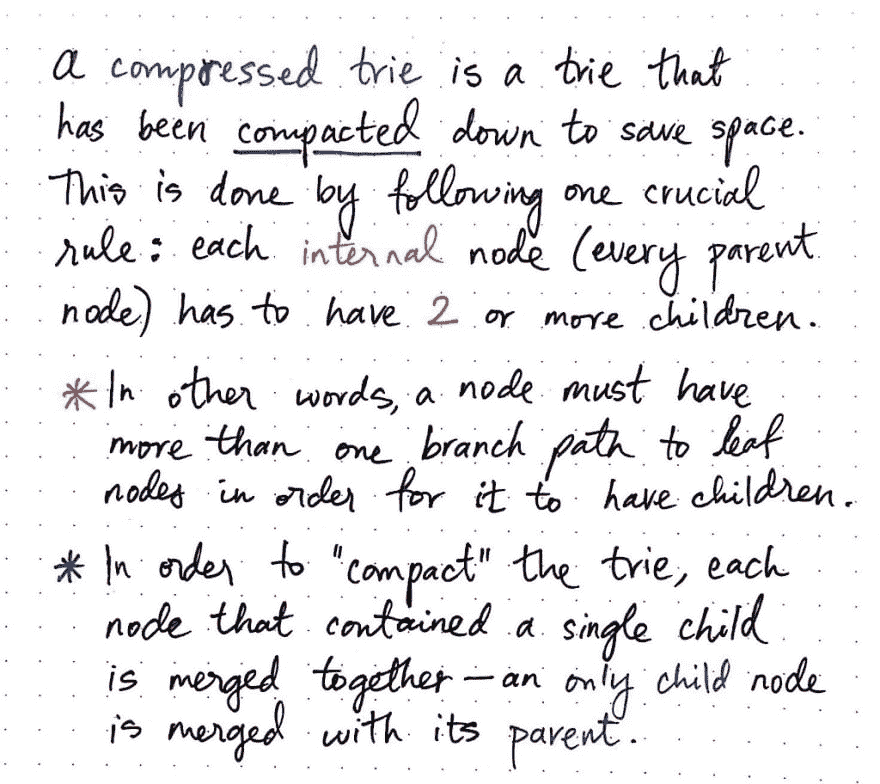 a compressed trie is a trie that
has been compacted down to save space.
This is done by following one crucial
rule: each internal node (every parent
node) has to have 2 or more children.
* In other words, a node must have
more than one branch path to leaf
nodes in order for it to have children.
* In order to "compact" the trie, each
node that contained a single child
is merged together – an only child node
is merged with its parent.